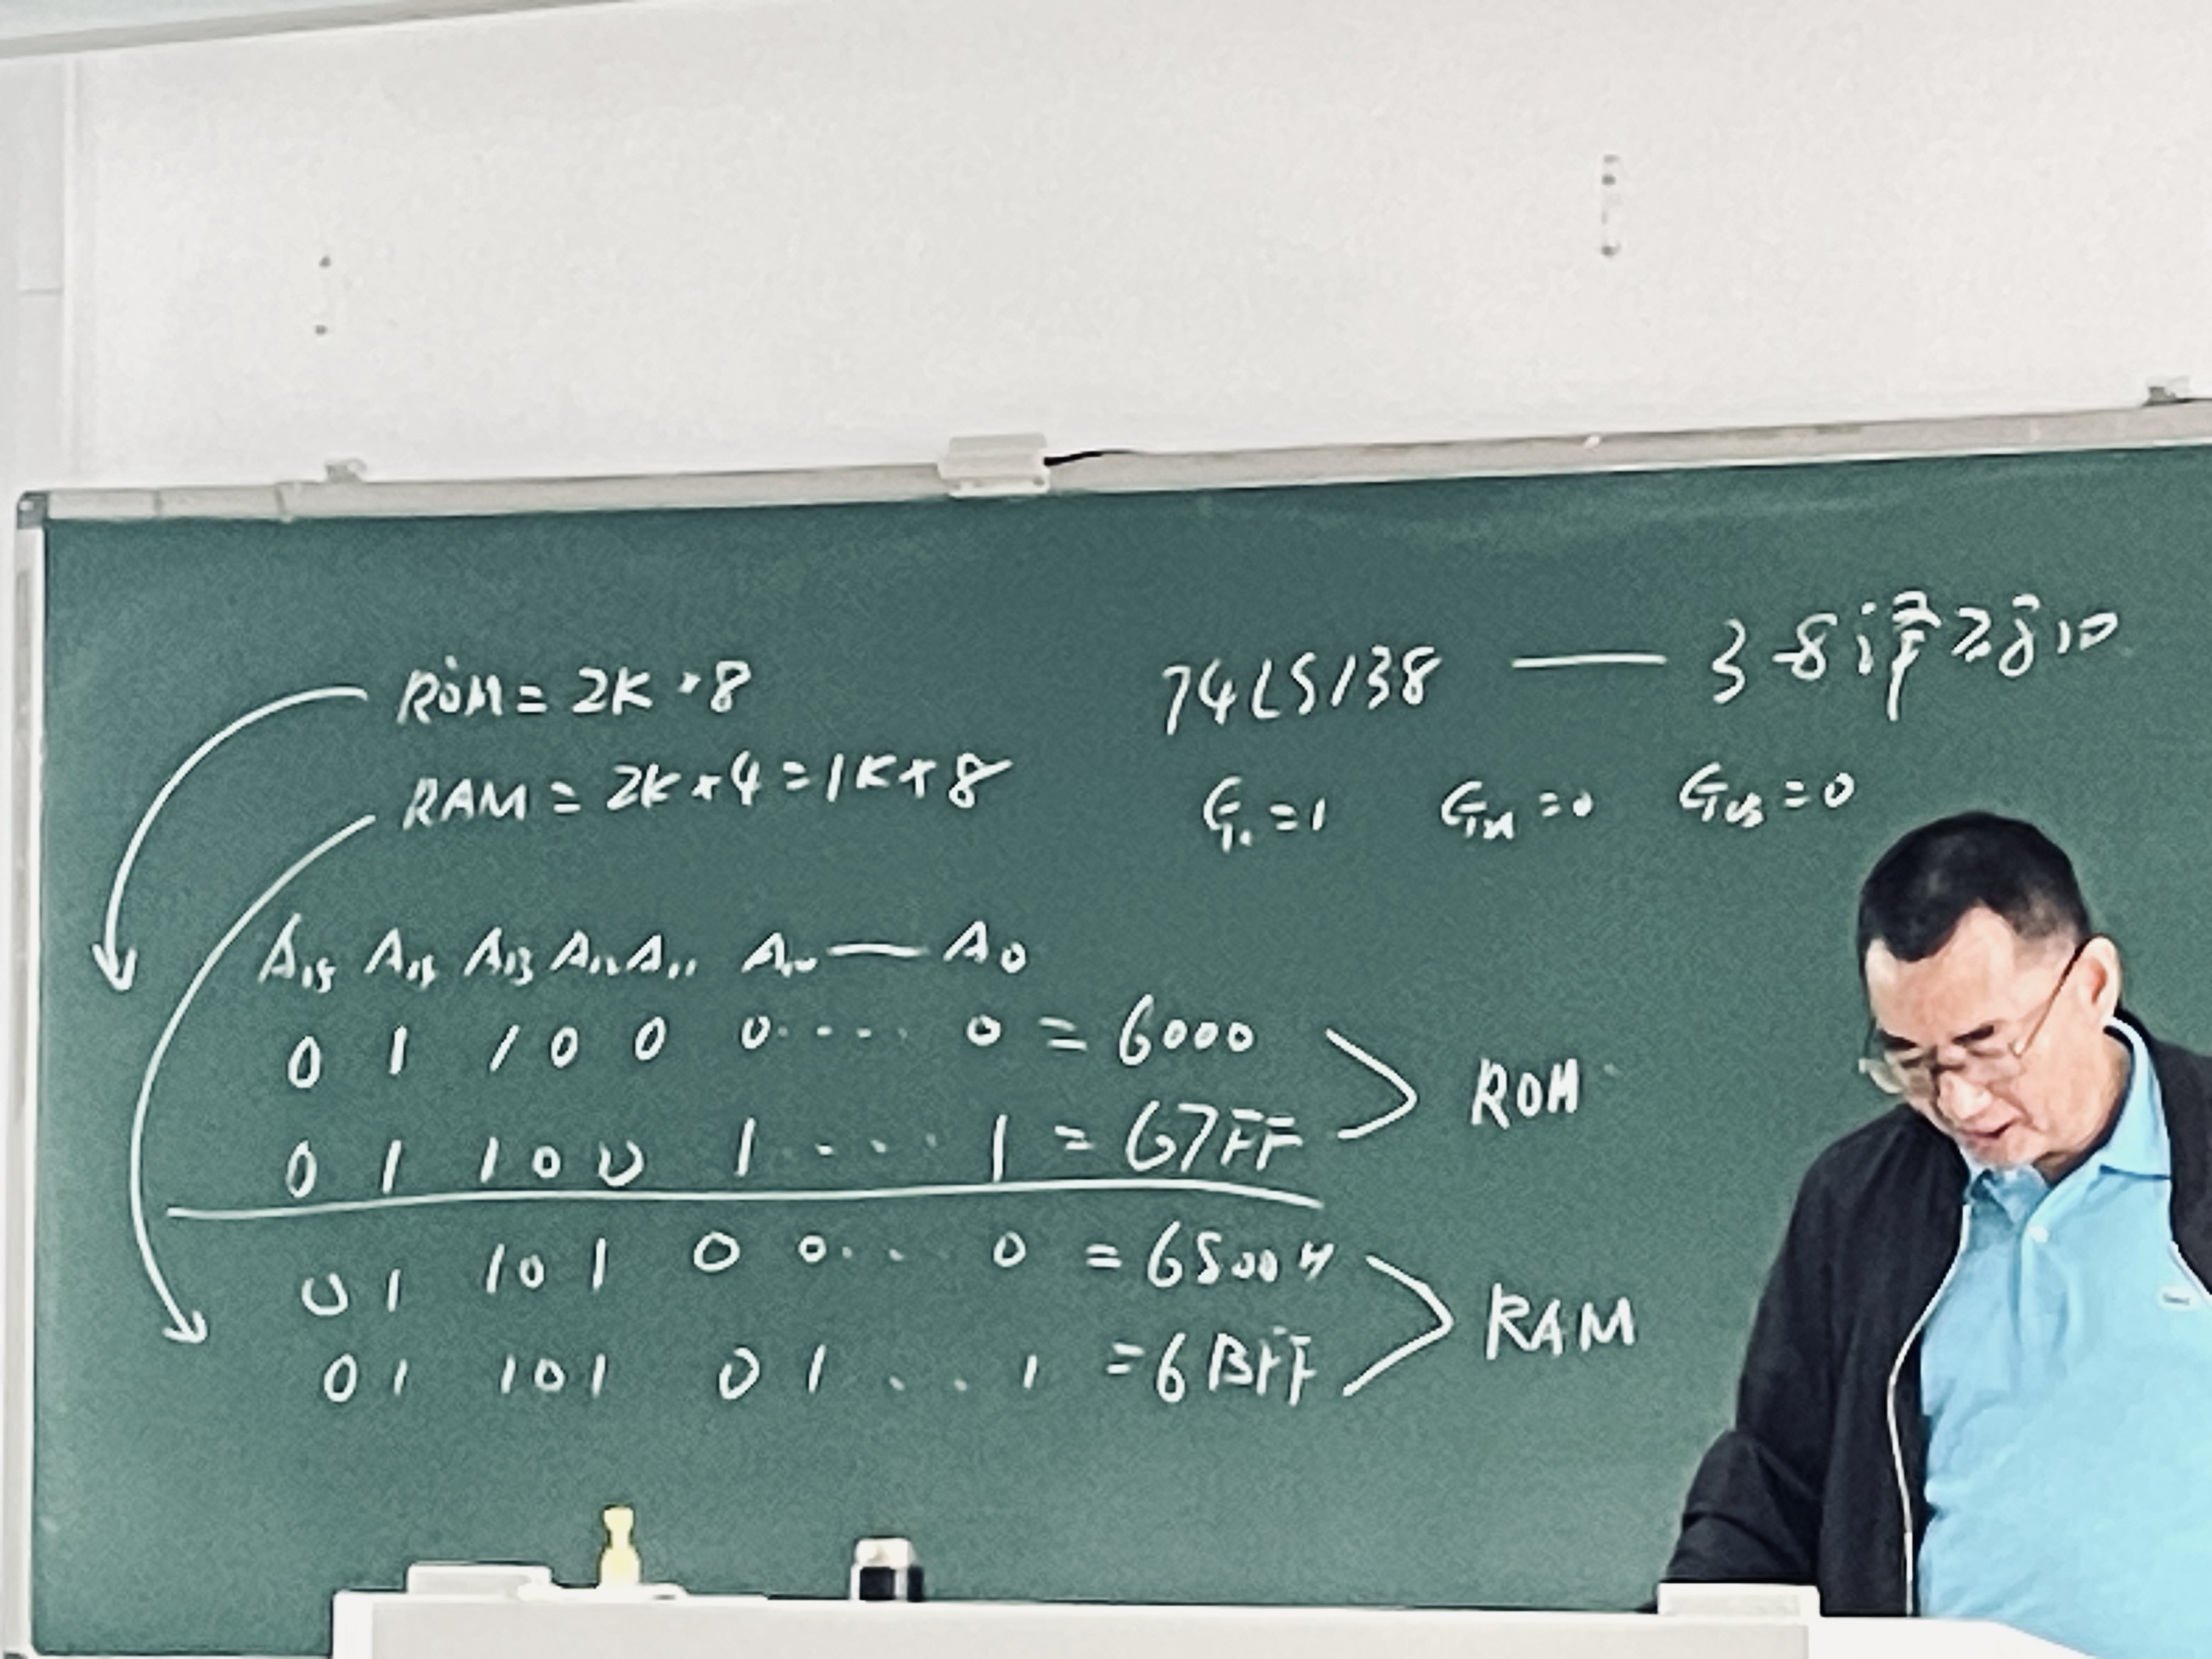 ROM = 2K*8
RAM = 2K*4 = 1K*8
74LS138 — 3-8译码
G1=1 G2A=0 G2B=0
A15 A14 A13 A12 A11 A10 — A0
0 1 1 0 0 0 .... 0 = 6000
0 1 1 0 0 1 .... 1 = 67FF
ROM
0 1 1 0 1 0 0 ... 0 = 6800H
0 1 1 0 1 0 1 ... 1 = 6BFF
RAM